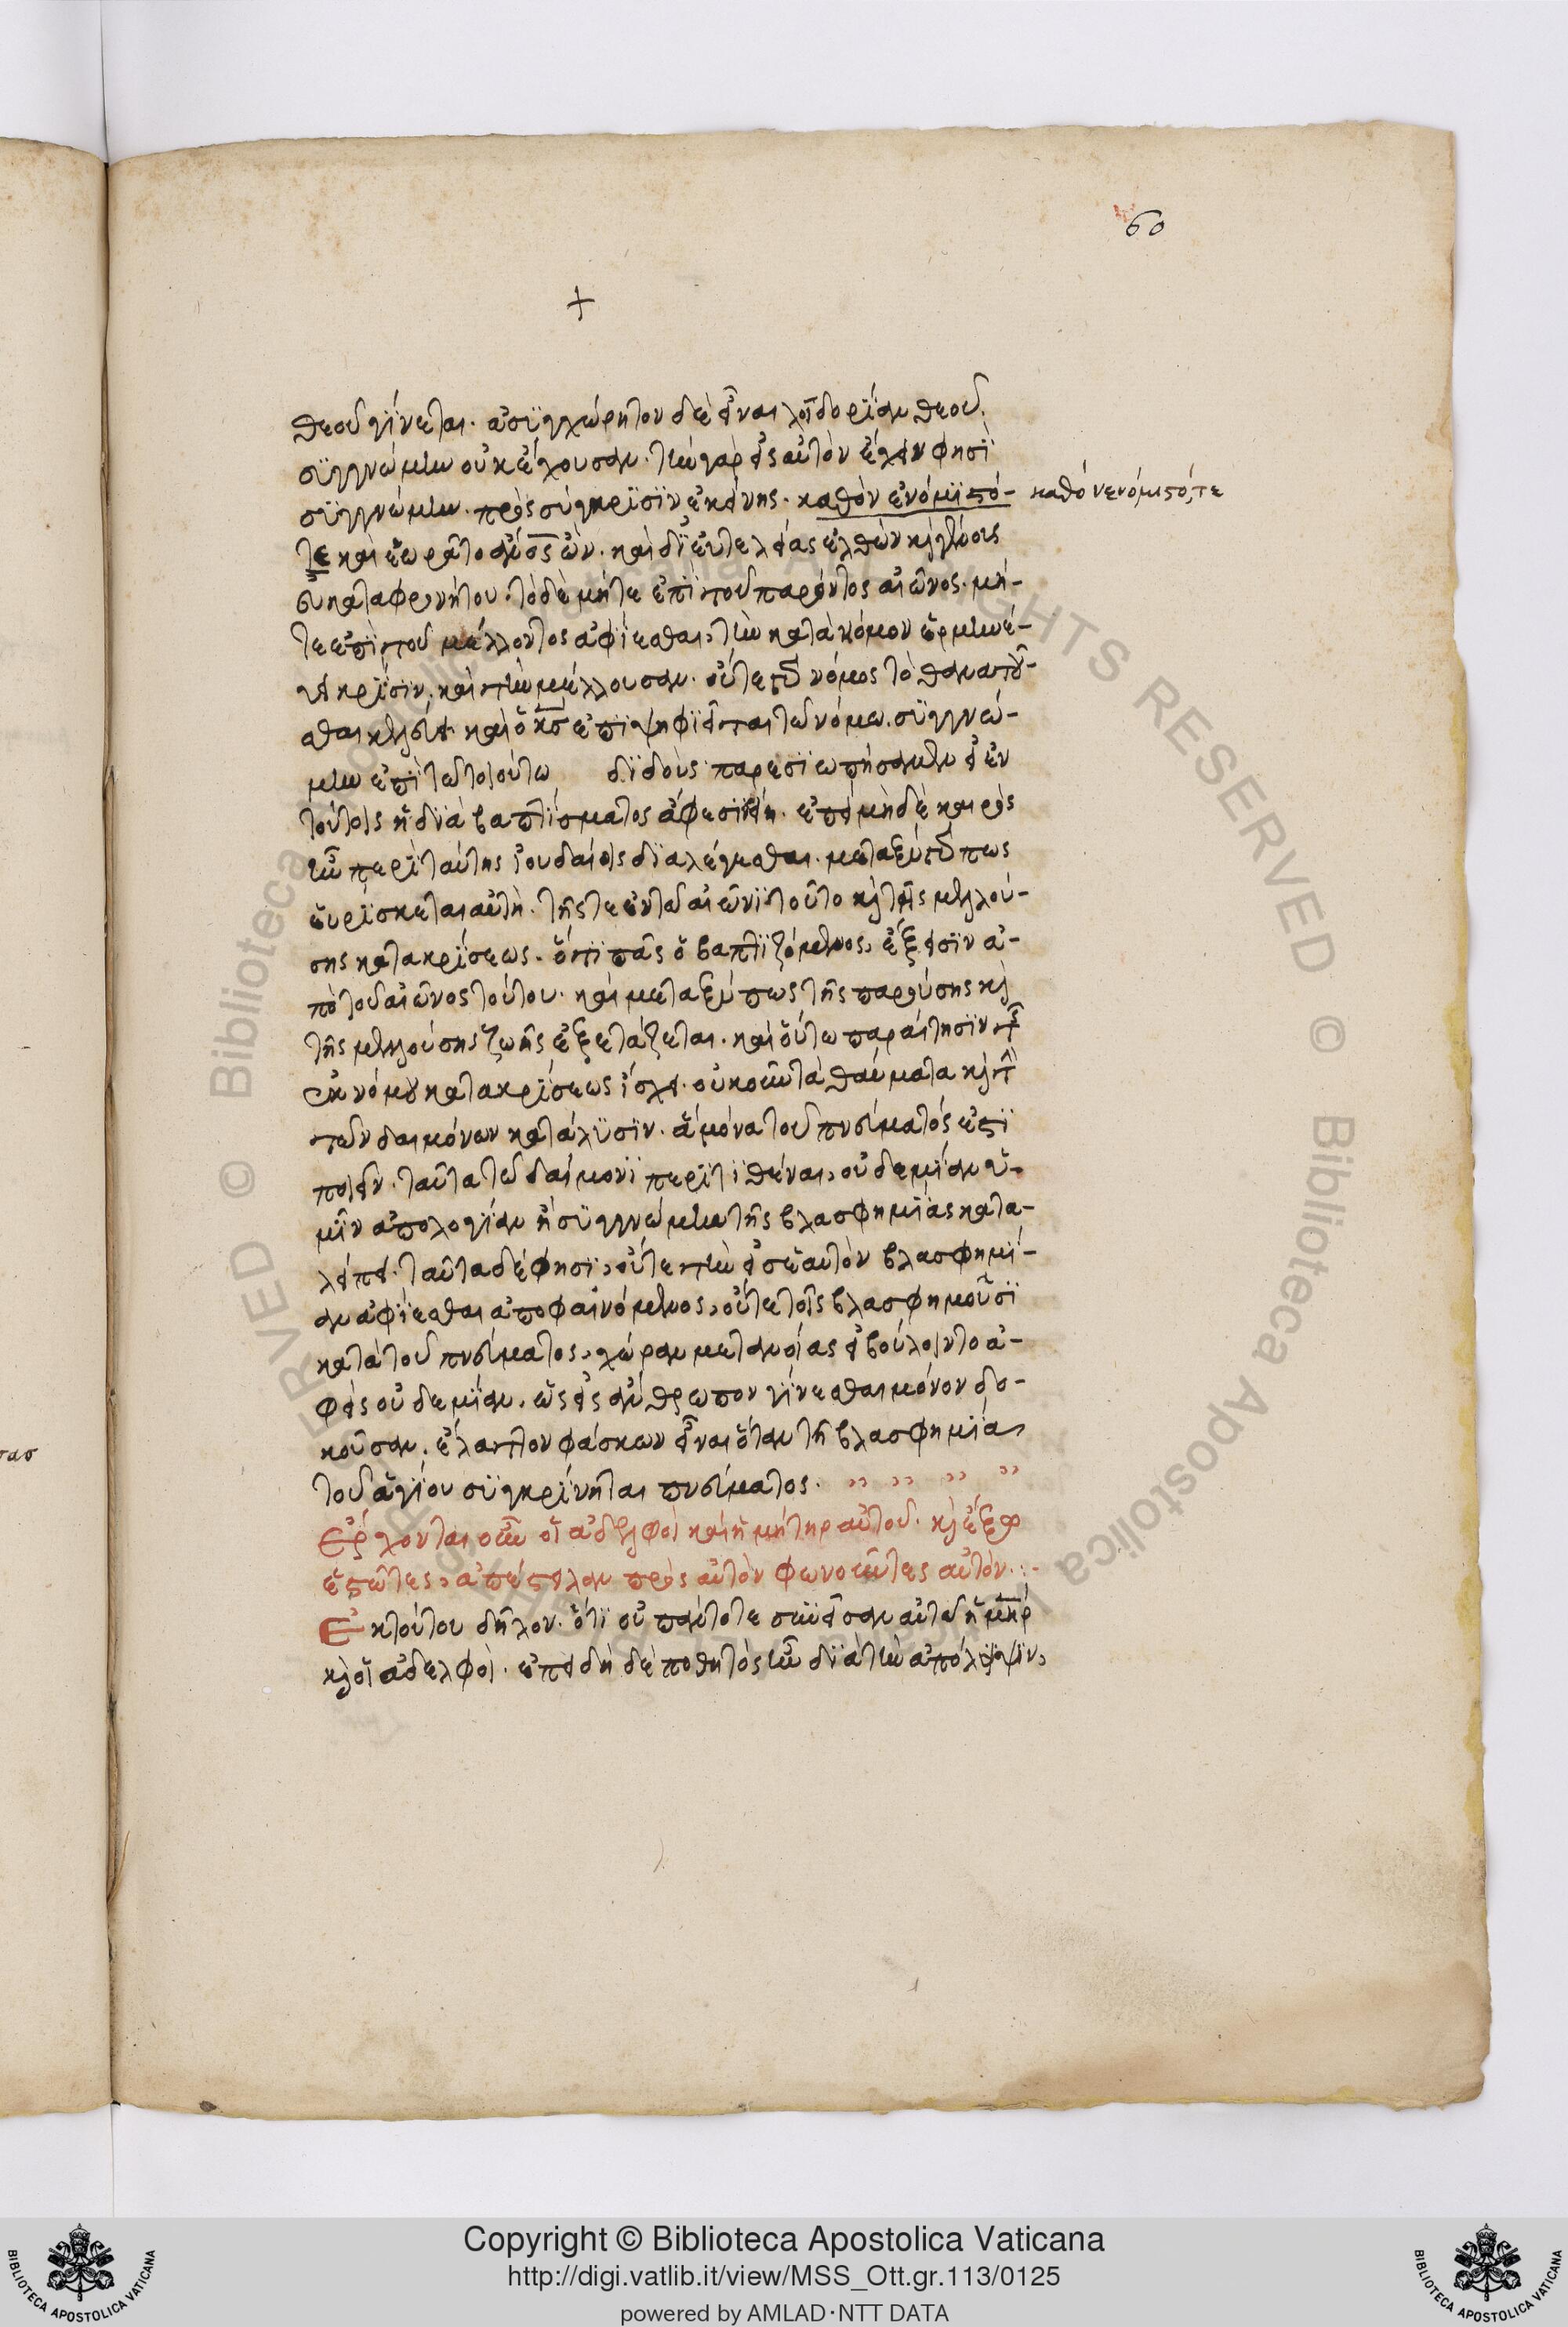 60
+
θεοῦ γίνεται. ἀσϋγχώρητον δὲ εἶναι λοιδορίαν θεοῦ.
σϋγγνώμην οὐκ ἔχουσαν. τὴν γὰρ εἰς αὐτὸν ἔχειν φησῒ
σϋγγνώμην. πρὸς σύγκρϊσϊν ἐκείνης. καθὸν ἐνόμϊστό-
τε καὶ ἑωρᾶτο ἄνο̅ς̅ ὢν. καὶ δϊ εὐτελείας ἐλθὼν κὶ
εὐκαταφρονήτου. τὸ δὲ μήτε ἐπῒ τοῦ παρόντος αἰῶνος. μή-
τε ἐπῒ τοῦ μέλλοντος ἀφίεσθαι, τὴν κατὰ νόμον ἑρμηνεύ-
ει κρίσϊν, καὶ τὴν μέλλουσαν. οὔτε γὰρ νόμος τὸ θανατοῦ-
σθαι κελεύει καὶ ὁ κ̅ς̅ ἐπϊψηφϊεῖται τῷ νόμω. σϋγγνώ-
μην ἐπῒ τῷ τοιούτω δϊδοὺς παρεσϊωπήσαμεν εἰ ἐν
τούτοις ἡ δϊὰ βαπτίσματος ἄφεσϊς ἦν. ἐπεὶ μὴ δὲ καιρὸς
ἦν περῒ ταύτης ἰουδαίοις δϊαλέγεσθαι. μεταξὺ γάρ πως
εὑρϊσκεται αὐτὴ. τῆς τε ἐν τῷ αἰῶνϊ τούτο κὶ τῆς μελλού-
σης κατακρίσεως. ὅτϊ πᾶς ὁ βαπτϊζόμενος, ἔξεισϊν ἀ-
πὸ τοῦ αἰῶνος τούτου. καὶ μεταξύ πως τῆς παρούσης κὶ
τῆς μελλούσης ζωῆς ἐξετάζεται. καὶ οὕτω παραίτησϊν τῆς
ἐκ νόμου κατακρίσεως ἴσχει. οὐκοῦν τὰ θαύματα κὶ τὴν
τῶν δαιμόνων κατάλϋσϊν. ἃ μόνα τοῦ πνεύματός ἐστϊ
ποιεῖν. ταῦτα τῷ δαίμονϊ περϊτϊθέναι, οὐδεμίαν ὑ-
μῖν ἀπολογίαν ἢ σϋγγνώμην τῆς βλασφημΐας κατα-
λείπει. ταῦτα δέ φησϊ, οὔτε τὴν εἰς ἑαυτὸν βλασφημί-
αν ἀφϊεσθαι ἀποφαινόμενος, οὔτε τοῖς βλασφημοῦσϊ
κατὰ τοῦ πνεύματος, χώραν μετανοίας εἰ βούλοιντο ἀ-
φεὶς οὐδεμΐαν. ὡς εἰς ἄνθρωπον γίνεσθαι μόνον δο-
κοῦσαν. ἔλαττον φάσκων εἶναι ὅταν τῇ βλασφημΐα
τοῦ ἁγίου σϋγκρίνηται πνεύματος.
Ἔρχονται οὖν οἱ ἀδελφοὶ καὶ ἡ μήτηρ αὐτοῦ. κὶ ἔξω
ἑστῶτες, ἀπέστειλαν πρὸς αὐτὸν φωνοῦντες αὐτόν.
Ἐκ τούτου δῆλον. ὅτϊ οὐ πάντοτε συνῆσαν αὐτῷ ἡ μ̅η̅ρ
κὶ οἱ ἀδελφοὶ. ἐπειδὴ δὲ ποθητὸς ἦν δϊὰ τὴν ἀπόλειψϊν,
καθό νενόμιστό,τε
τασ
Copyright © Biblioteca Apostolica Vaticana
http://digi.vatlib.it/view/MSS_Ott.gr.113/0125
powered by AMLAD·NTT DATA
BIBLIOTECA APOSTOLICA VATICANA
BIBLIOTECA APOSTOLICA VATICANA